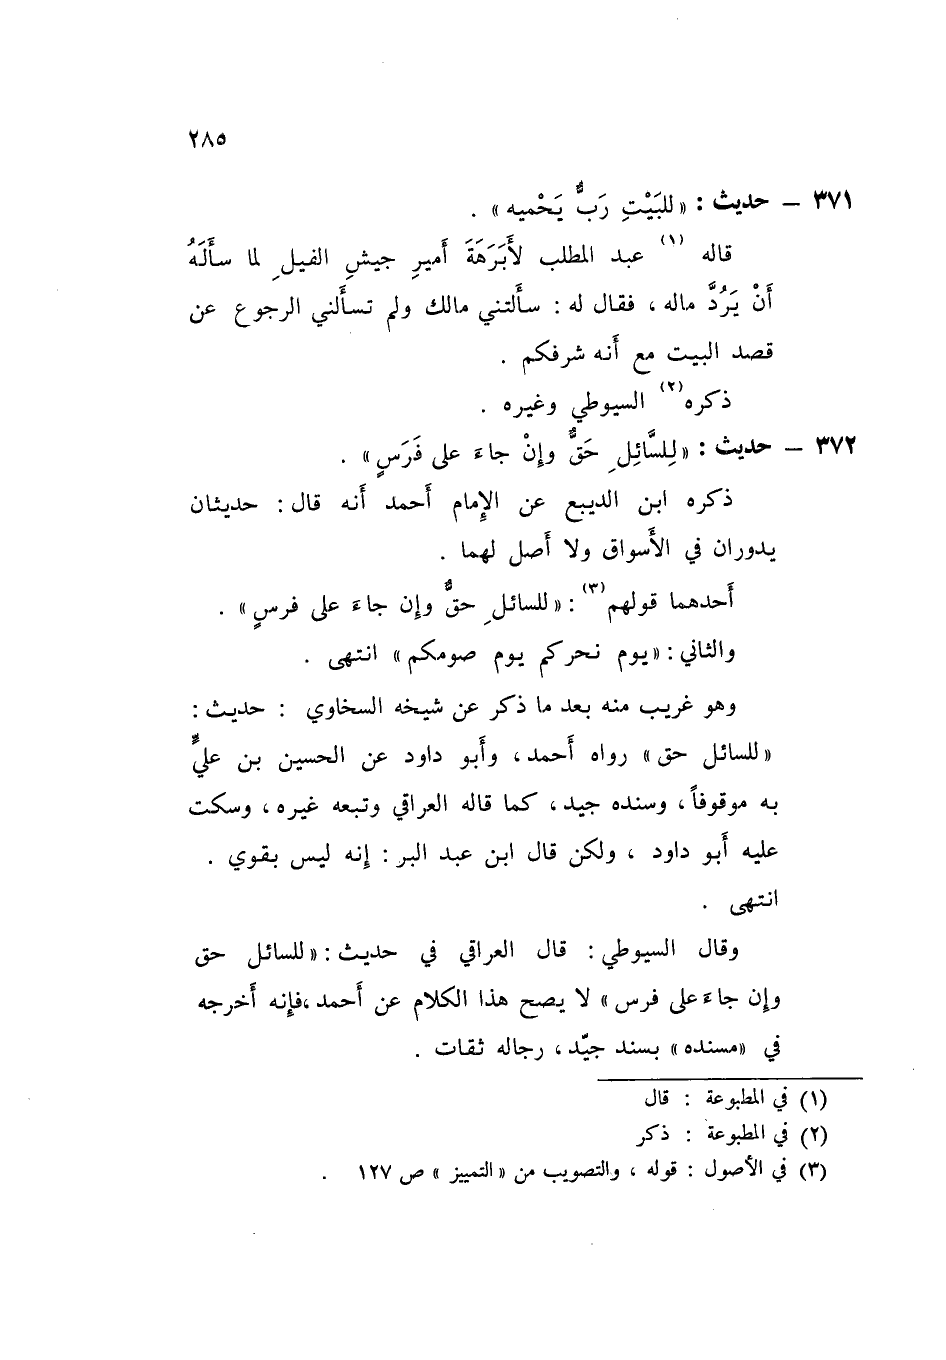 ٢٨٥
٣٧١ – حديث : «للبَيْتِ رَبٌّ يَحْميه» .
قاله (١) عبد المطلب لأَبَرَهَةَ أَميرِ جيشِ الفيلِ لما سأَلَهُ
أَنْ يَرُدَّ ماله ، فقال له : سأَلتني مالك ولم تسأَلني الرجوع عن
قصد البيت مع أَنه شرفكم .
ذكره (٢) السيوطي وغيره .
٣٧٢ – حديث : «لِلسَّائِلِ حَقٌّ وإِنْ جاءَ على فَرَسٍ» .
ذكره ابن الديبع عن الإِمام أَحمد أَنه قال : حديثان
يدوران في الأَسواق ولا أَصل لهما .
أَحدهما قولهم (٣) : «للسائلِ حقٌّ وإن جاءَ على فرسٍ» .
والثاني : «يوم نحركم يوم صومكم» انتهى .
وهو غريب منه بعد ما ذكر عن شيخه السخاوي : حديث :
«للسائل حق» رواه أَحمد ، وأَبو داود عن الحسين بن عليٌّ
به موقوفاً ، وسنده جيد ، كما قاله العراقي وتبعه غيره ، وسكت
عليه أَبو داود ، ولكن قال ابن عبد البر : إِنه ليس بقوي .
انتهى .
وقال السيوطي : قال العراقي في حديث : «للسائل حق
وإن جاءَ على فرس» لا يصح هذا الكلام عن أَحمد ، فإِنه أَخرجه
في «مسنده» بسند جيّد ، رجاله ثقات .
(١) في المطبوعة : قال
(٢) في المطبوعة : ذكر
(٣) في الأصول : قوله ، والتصويب من «التمييز» ص ١٢٧ .